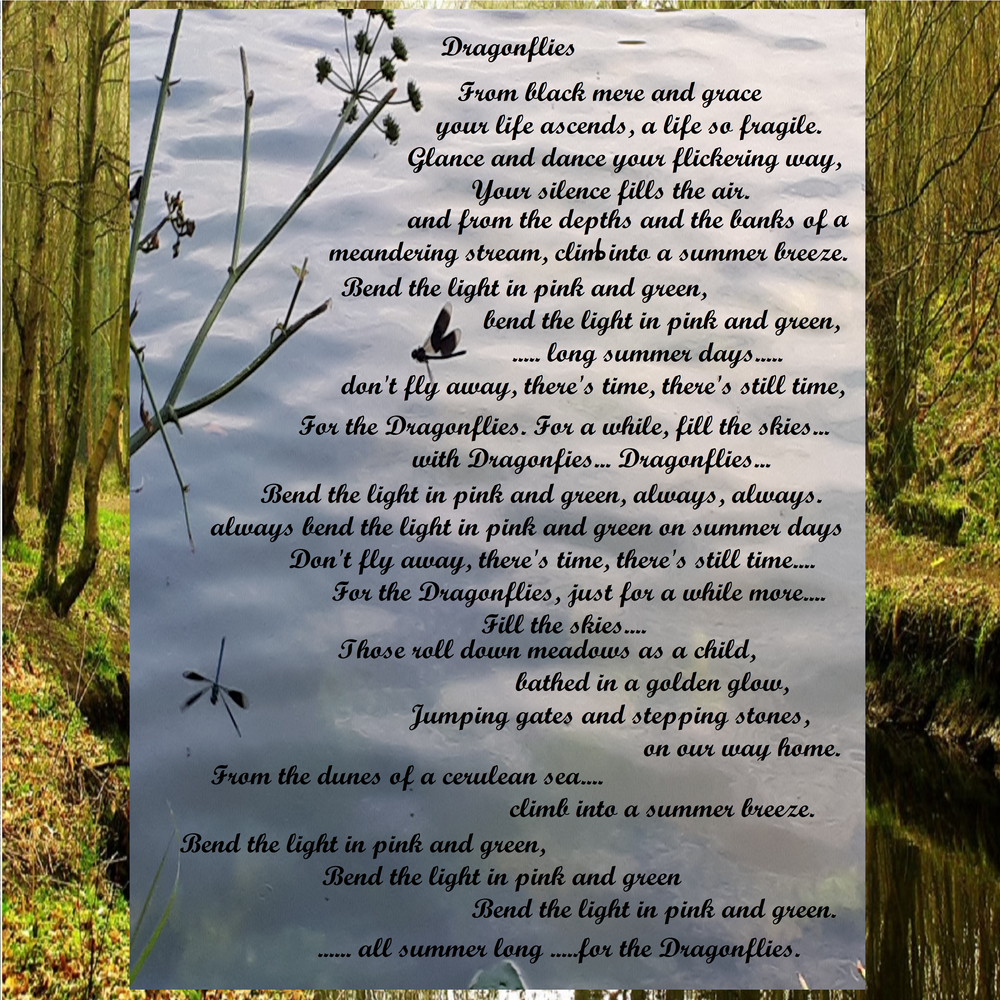 Dragonflies
From black mere and grace
your life ascends, a life so fragile.
Glance and dance your flickering way,
Your silence fills the air.
and from the depths and the banks of a
meandering stream, climb into a summer breeze.
Bend the light in pink and green,
bend the light in pink and green,
..... long summer days.....
don't fly away, there's time, there's still time,
For the Dragonflies. For a while, fill the skies...
with Dragonfies... Dragonflies...
Bend the light in pink and green, always, always.
always bend the light in pink and green on summer days
Don't fly away, there's time, there's still time....
For the Dragonflies, just for a while more....
Fill the skies....
Those roll down meadows as a child,
bathed in a golden glow,
Jumping gates and stepping stones,
on our way home.
From the dunes of a cerulean sea....
climb into a summer breeze.
Bend the light in pink and green,
Bend the light in pink and green
Bend the light in pink and green.
...... all summer long .....for the Dragonflies.